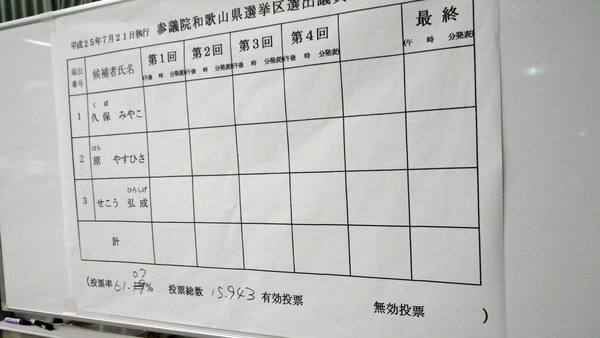 平成25年7月21日執行 参議院和歌山県選挙区選出議員
届出番号 候補者氏名 第1回 第2回 第3回 第4回 最終
(午後 時 分発表) (午後 時 分発表) (午後 時 分発表) (午後 時 分発表) (午 時 分発表)
くぼ
1 久保 みやこ
はら
2 原 やすひさ
ひろしげ
3 せこう 弘成
計
07
(投票率 61. % 投票総数 15,943 有効投票 無効投票 )